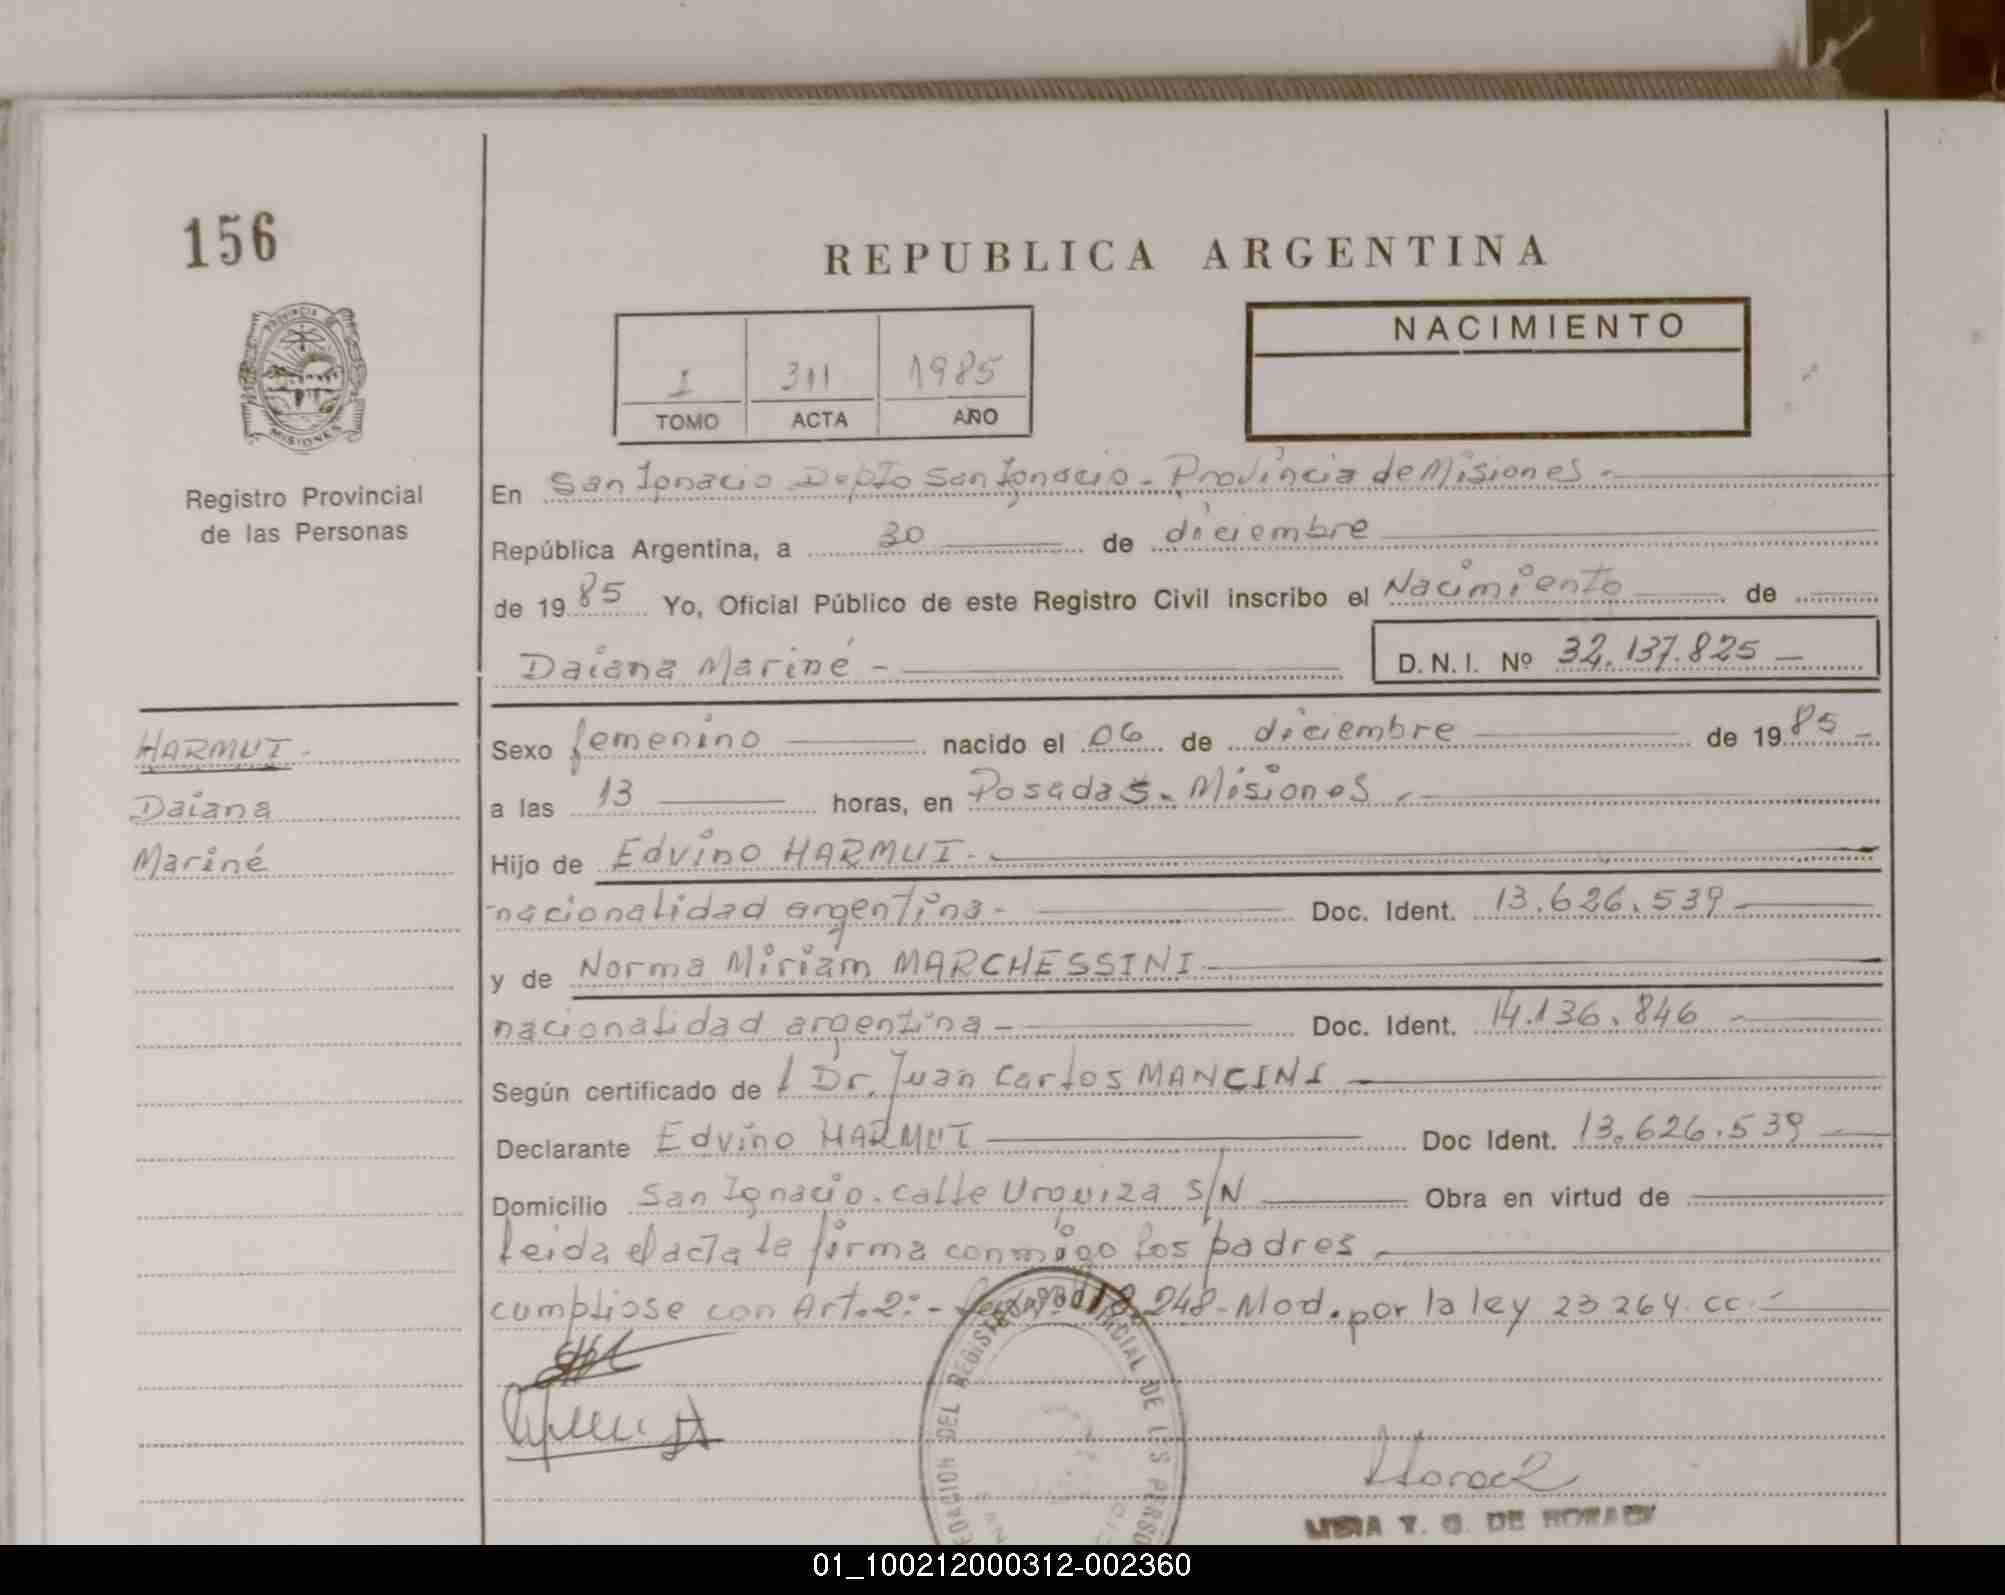 156
REPUBLICA ARGENTINA
PROVINCIA DE
MISIONES
NACIMIENTO
I 311 1985
TOMO ACTA AÑO
Registro Provincial
de las Personas
En San Ignacio Depto San Ignacio. Provincia de Misiones.
República Argentina, a 30 de diciembre
de 1985 Yo, Oficial Público de este Registro Civil inscribo el Nacimiento de
Daiana Mariné - D.N.I. Nº 32.137.825
HARMUT.
Daiana
Mariné
Sexo femenino nacido el 06 de diciembre de 1985
a las 13 horas, en Posadas. Misiones
Hijo de Edvino HARMUT.
nacionalidad argentina- Doc. Ident. 13.626.539
y de Norma Miriam MARCHESSINI
nacionalidad argentina- Doc. Ident. 14.136.846
Según certificado de l Dr. Juan Carlos MANCINI
Declarante Edvino HARMUT Doc Ident. 13.626.539
Domicilio San Ignacio. calle Urquiza S/N Obra en virtud de
leida el acta le firma conmigo los padres
cumpliose con Art. 2º - 18.248- Mod. por la ley 23264. cc.
DEL REGISTRO PROVINCIAL DE LAS PERSO
DE
01_100212000312-002360